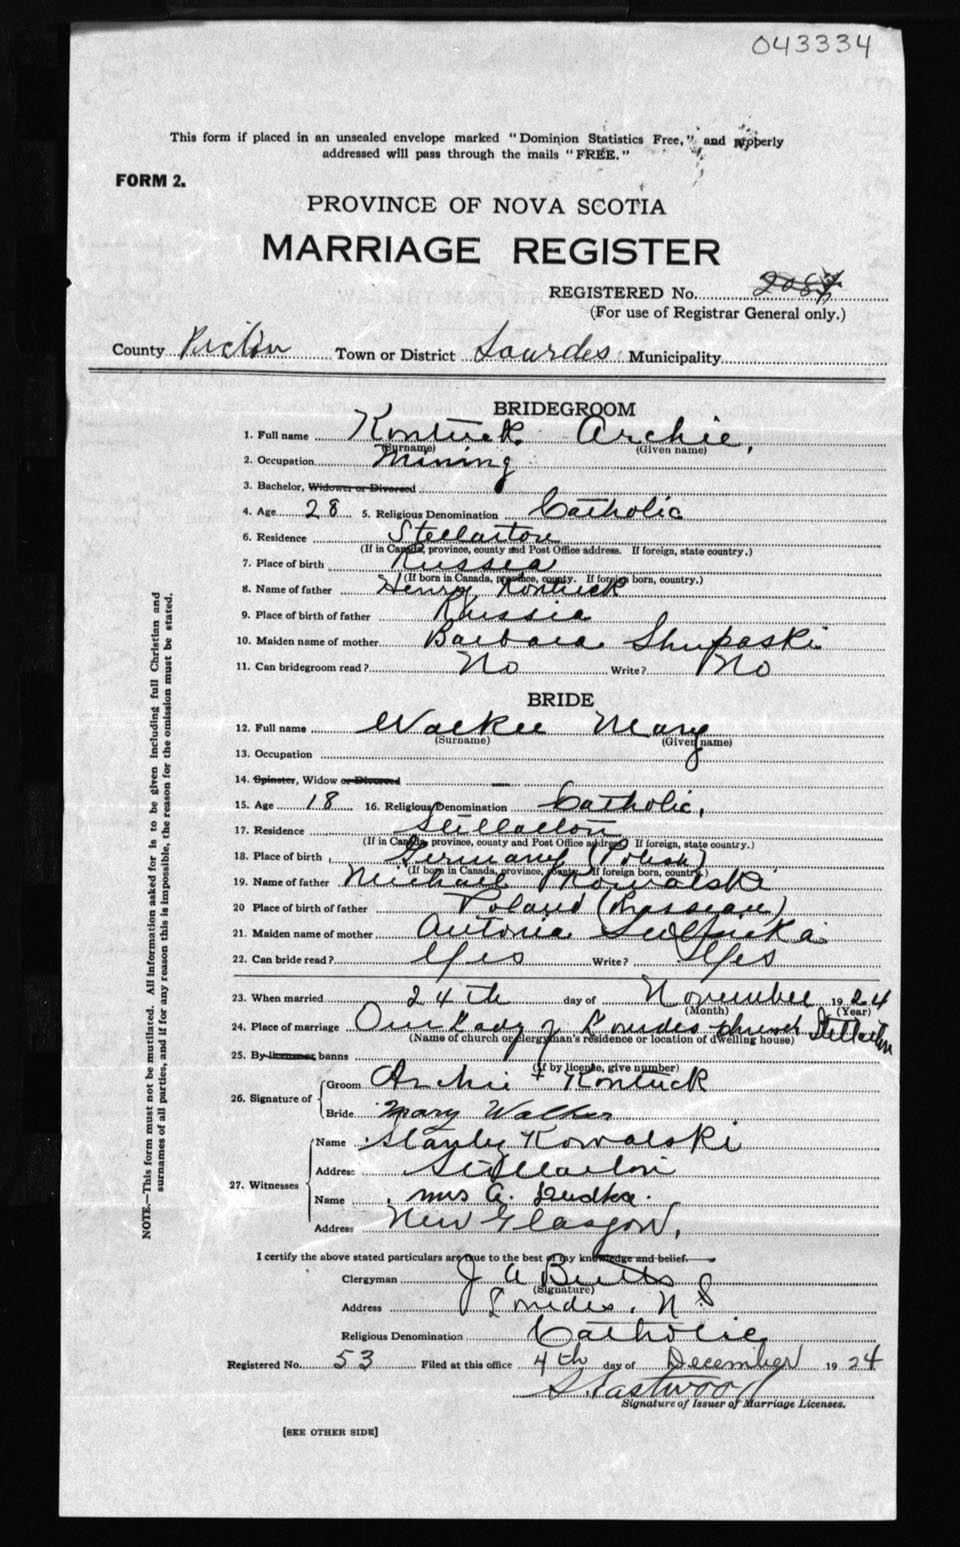 043334
This form if placed in an unsealed envelope marked "Dominion Statistics Free," and properly
addressed will pass through the mails "FREE."
FORM 2.
PROVINCE OF NOVA SCOTIA
MARRIAGE REGISTER
REGISTERED No.
(For use of Registrar General only.)
County Pictou Town or District Lourdes Municipality
BRIDEGROOM
1. Full name Kontuck Archie,
(Surname) (Given name)
2. Occupation Mining
3. Bachelor, Widower or Divorced
4. Age 28 5. Religious Denomination Catholic
6. Residence Stellarton
(If in Canada, province, county and Post Office address. If foreign, state country.)
7. Place of birth Russia
(If born in Canada, province, county. If foreign born, country.)
8. Name of father Henry Kontuck
9. Place of birth of father Russia
10. Maiden name of mother Barbara Shupaski
11. Can bridegroom read? No Write? No
BRIDE
12. Full name Walker Mary
(Surname) (Given name)
13. Occupation
14. Spinster, Widow or Divorced
15. Age 18 16. Religious Denomination Catholic,
17. Residence Stellarton
(If in Canada, province, county and Post Office address. If foreign, state country.)
18. Place of birth Germany (Polish)
(If born in Canada, province, county. If foreign born, country.)
19. Name of father Michael Kowalski
20 Place of birth of father Poland (Russian)
21. Maiden name of mother Antonia
22. Can bride read? Yes Write? Yes
23. When married 24th day of November 1924
(Month) (Year)
24. Place of marriage Our Lady of Lourdes church Stellarton
(Name of church or clergyman's residence or location of dwelling house)
25. By license, banns
(If by license, give number)
26. Signature of
Groom Archie + Kontuck
Bride Mary Walker
27. Witnesses
Name Stanley Kowalski
Address Stellarton
Name Mrs A. Dudka.
Address New Glasgow,
I certify the above stated particulars are true to the best of my knowledge and belief.
Clergyman J A Butts
(Signature)
Address Lourdes, N S
Religious Denomination Catholic
Registered No. 53 Filed at this office 4th day of December 1924
S. Eastwood
Signature of Issuer of Marriage Licenses.
[SEE OTHER SIDE]
NOTE.—This form must not be mutilated. All information asked for is to be given including full Christian and
surnames of all parties, and if for any reason this is impossible, the reason for the omission must be stated.